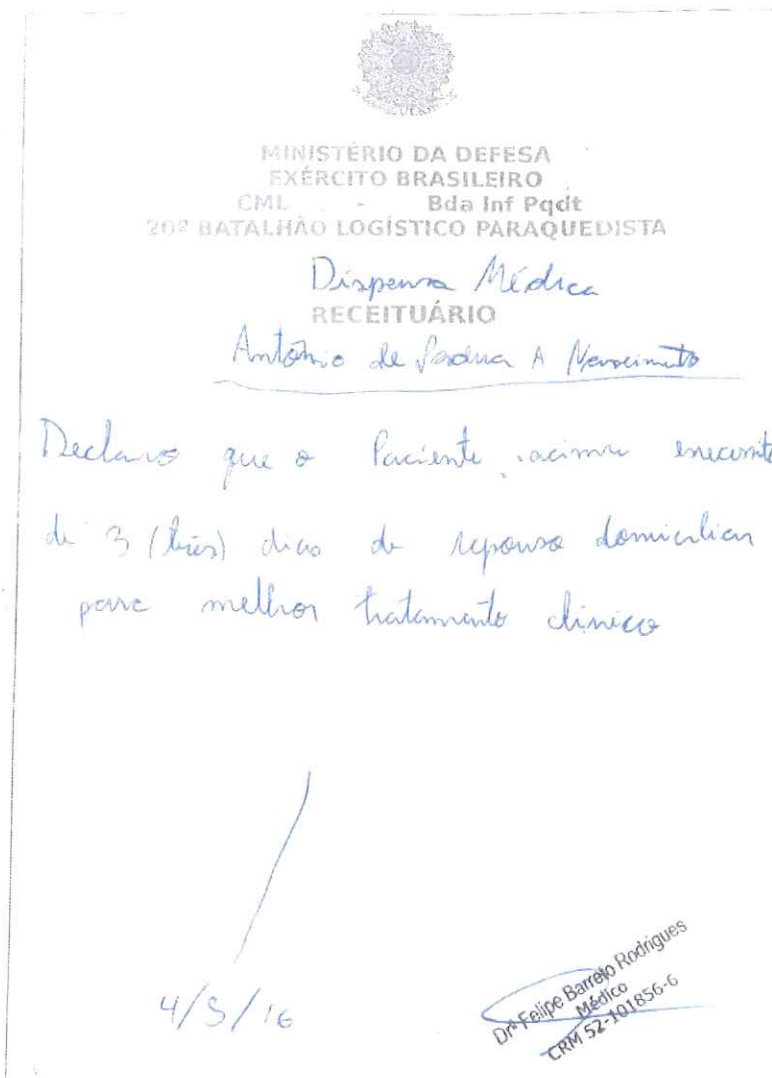 MINISTÉRIO DA DEFESA
EXÉRCITO BRASILEIRO
CML - Bda Inf Pqdt
20º BATALHÃO LOGÍSTICO PARAQUEDISTA
Dispensa Médica
RECEITUÁRIO
Antônio de Padua A Nascimento
Declaro que o Paciente acima
de 3 (três) dias de repouso domiciliar
para melhor tratamento clinico
4/5/16
Drº Felipe Barreto Rodrigues
Médico
CRM 52-101856-6